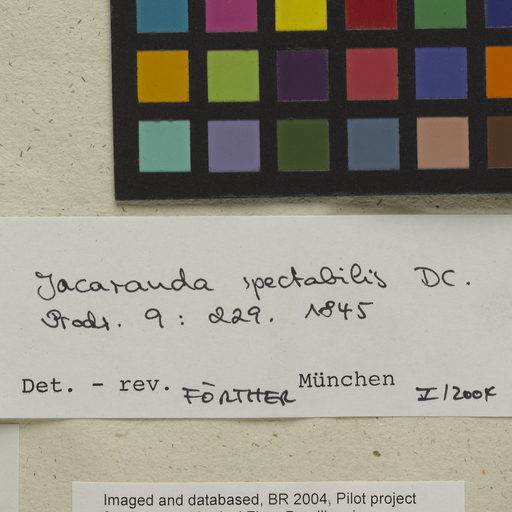 Jacaranda spectabilis DC.
Prodr. 9 : 229. 1845
Det. - rev. FÖRTHER München
Imaged and databased, BR 2004, Pilot project